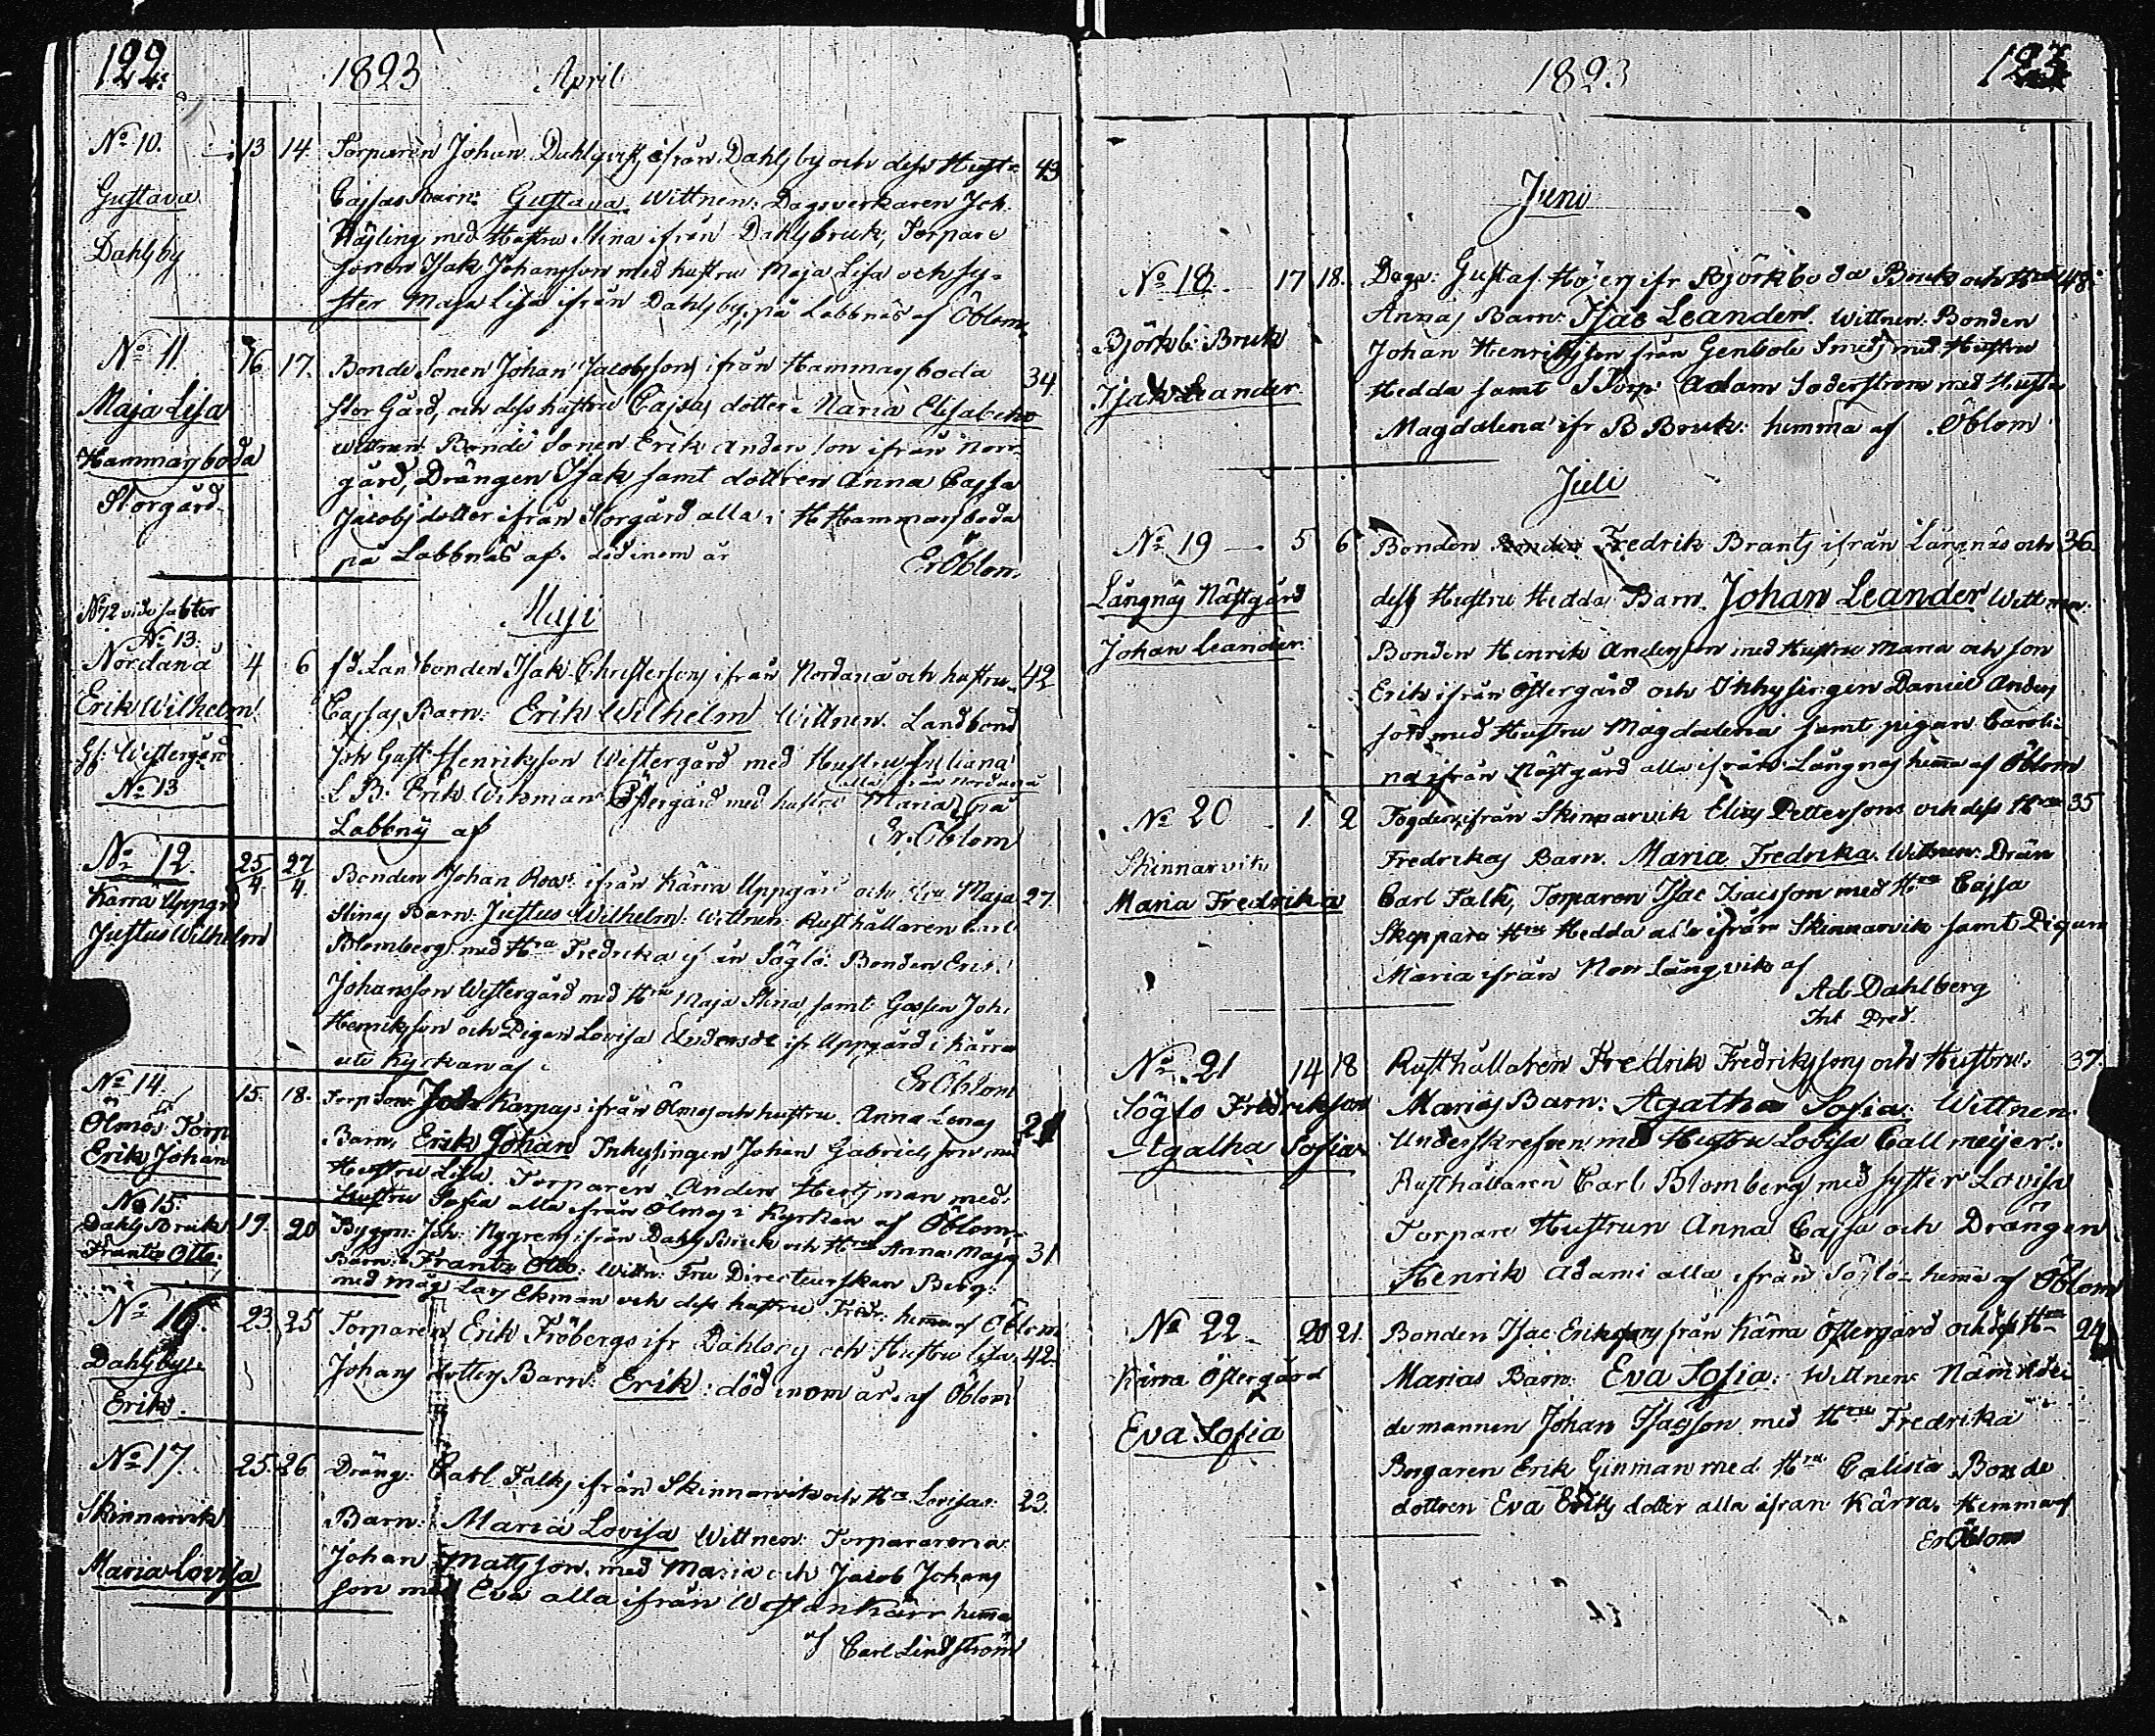 122.
1823 April
No 10. 13 14 Torparen Johan Dahlqvist, ifrån Dahlsby och dess Hust= 43
Gustava Cajsas Barn: Gustava. Wittnen: Dagsverkaren Joh.
med Hustru Stina ifrån Dahlsbruk, Torpare
Dahlsby sonen Isak Johansson med hustru Maja Lisa och sy=
ster Maja Lisa ifrån Dahlsby, på Labbnäs af Öblom.
No 11. 16. 17. Bonde Sonen Johan Jacobssons ifrån Hammarsboda 34.
Maja Lisa Stor Gård, och dess hustru Cajsas dotter: Maria Elisabeth
Hammarsboda wittnen: Bonde Sonen Erik Anderson ifrån Norr=
Storgård gård, Drängen Isak samt dottren Anna Cajsa
Jacobsdotter ifrån Storgård alla i Hammarsboda
på Labbnäs af. död inom år Er Öblom.
No 12 vide
Maji
No 13.
Nordanå 4 6 Landbonden Isak Christersons ifrån Nordanå och hustru 42
Erik Wilhelm Cajsas Barn: Erik Wilhelm. Wittnen. Landbond
Westergård Joh Gust Henriksson Westergård med Hustru Juliana
alla ifrån Nordanå
No 13 L B. Erik Wikman Östergård med hustru Maria på
Labbnäs af Er. Öblom
No 12. 25/4. 27/4. Bonden Johan Roos ifrån Kärra Uppgård och Maja 27.
Kärra Uppgrd Stinas Barn: Justus Wilhelm: Wittnen: Rusthållaren Carl
Justus Wilhelm Blomberg med Hru Fredrika ifrån Söglö. Bonden Erik
Johansson Westergård med Hru Maja Stina samt Gossen Joh.
Henriksson och Pigan Lovisa ifr Uppgård i Kärra
uti Kyrkan af Er Öblom
No 14. 15. 18. Torp Son: Joh. Karpas ifrån Ölmos och hustru Anna Lenas 21
Ölmos Torp Barn, Erik Johan Inhysingen Johan Gabrielsson med
Erik Johan Hustru Lisa. Torparen Anders Hertman med
hustru Sofia alla ifrån Ölmos i Kyrkan af Öblom.
No 15.
Dahls Bruk 19. 20 Byggm: Joh: Nygrens ifrån Dahls Bruk och Hru Anna Majas 31
Frantz Otto. Barn: Frantz Otto: Wittn: Fru Directeurskan Berg.
med måg Lars Ekman och dess hustru Fredr. hemma af Öblom
No 16. 23. 25 Torparen Erik Fröbergs ifr Dahlsby och Hustru Lisa 42.
Dahlsby. Johans dotters Barn: Erik: död inom år. af Öblom
Erik.
No 17. 25. 26. Dräng: Carl Falks ifrån Skinnarvik och Hru Lovisas 23.
Skinnarvik Barn: Maria Lovisa Wittnen: Torpararena
Maria Lovisa Johan Mattsson, med Maria och Jacob Johans
son med Eva alla ifrån Westankärr hemma
af Carl Lindström
1823 123
Juni
No 18. 17 18. Dagv: Gustaf Höjers ifr Björkboda Bruk och Hru 48.
Björkb. Bruk Annas Barn: Isac Leander. Wittnen: Bonden
Johan Henriksson från Genböle Smeds med Hustru
Isak Leander Hedda samt Torp: Adam Söderström med Hustr
Magdalena ifr B Bruk: hemma af Öblom
Juli
No 19 5 6 Bonden Fredrik Brants ifrån Långnäs och 36.
Långnäs Nästgård dess Hustru Hedda Barn. Johan Leander Wittnen:
Johan Leander Bonden Henrik Andersson med Hustru Maria och son
Erik ifrån Östergård och Inhysingen Daniel Anders
son med Hustru Magdalena samt pigan Caroli=
na ifrån Nästgård alla ifrån Långnäs hemma af Öblom
No 20 1 2 Fogden ifrån Skinnarvik Elias Pettersons och dess Hru 35
Skinnarvik Fredrikas Barn. Maria Fredrika. Wittnen: Drän
Maria Fredrika Carl Falk, Torparen Isac Isacsson med Hru Cajsa
Skeppare Hru Hedda alla ifrån Skinnarvik samt Pigan
Maria ifrån Norr Långvik af
Ad. Dahlberg
Int Pred.
No 21 14 18 Rusthållaren Fredrik Fredrikssons och Hustru 37.
Söglö Fredrikson Marias Barn: Agatha Sofia. Wittnen:
Agatha Sofia. Underskrefven med Hustru Lovisa Callmeijer.
Rusthållaren Carl Blomberg med syster Lovisa
Torpare Hustrun Anna Cajsa och Drängen
Henrik Adami alla ifrån Söglö hemma af Öblom
No 22. 20 21. Bonden Isac Eriksons från Kärra Östergård och dess Hru 24
Kärra Östergård Marias Barn: Eva Sofia: Wittnen: Nämnde
Eva Sofia demannen Johan Isacsson med Hru Fredrika
Borgaren Erik Ginman med Hru Calisia. Bonde
dottren Eva Eriks dotter alla ifrån Kärra. Hemma af
Er Öblom